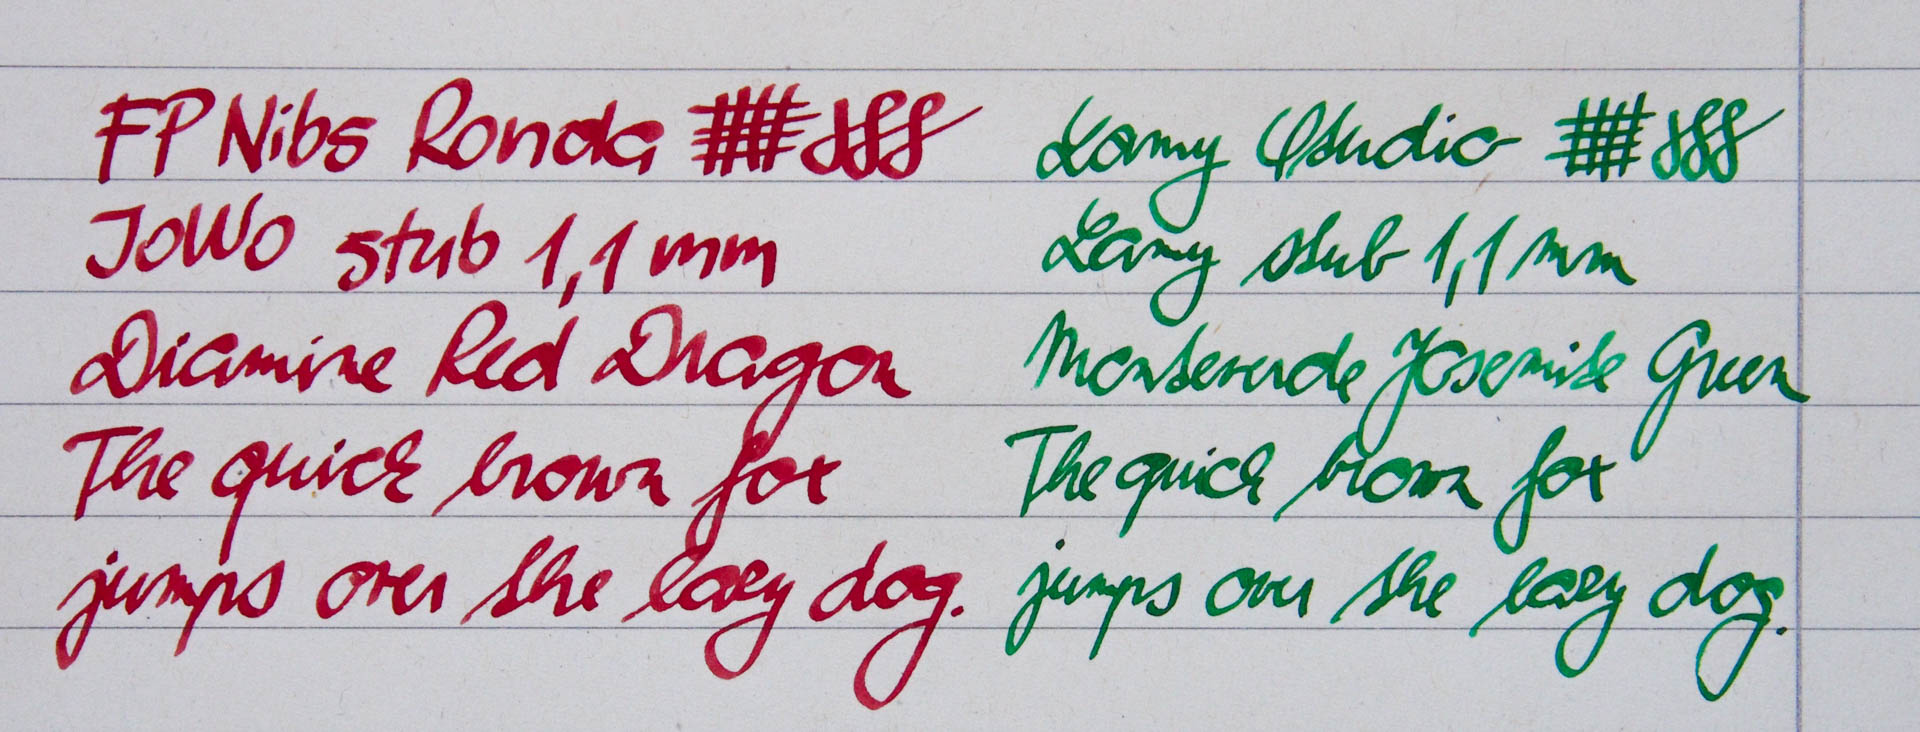 FP Nibs Ronda
JoWo stub 1,1 mm
Diamine Red Dragon
The quick brown fox
jumps over the lazy dog.
Lamy Studio
Lamy stub 1,1 mm
Monteverde Yosemite Green
The quick brown fox
jumps over the lazy dog.